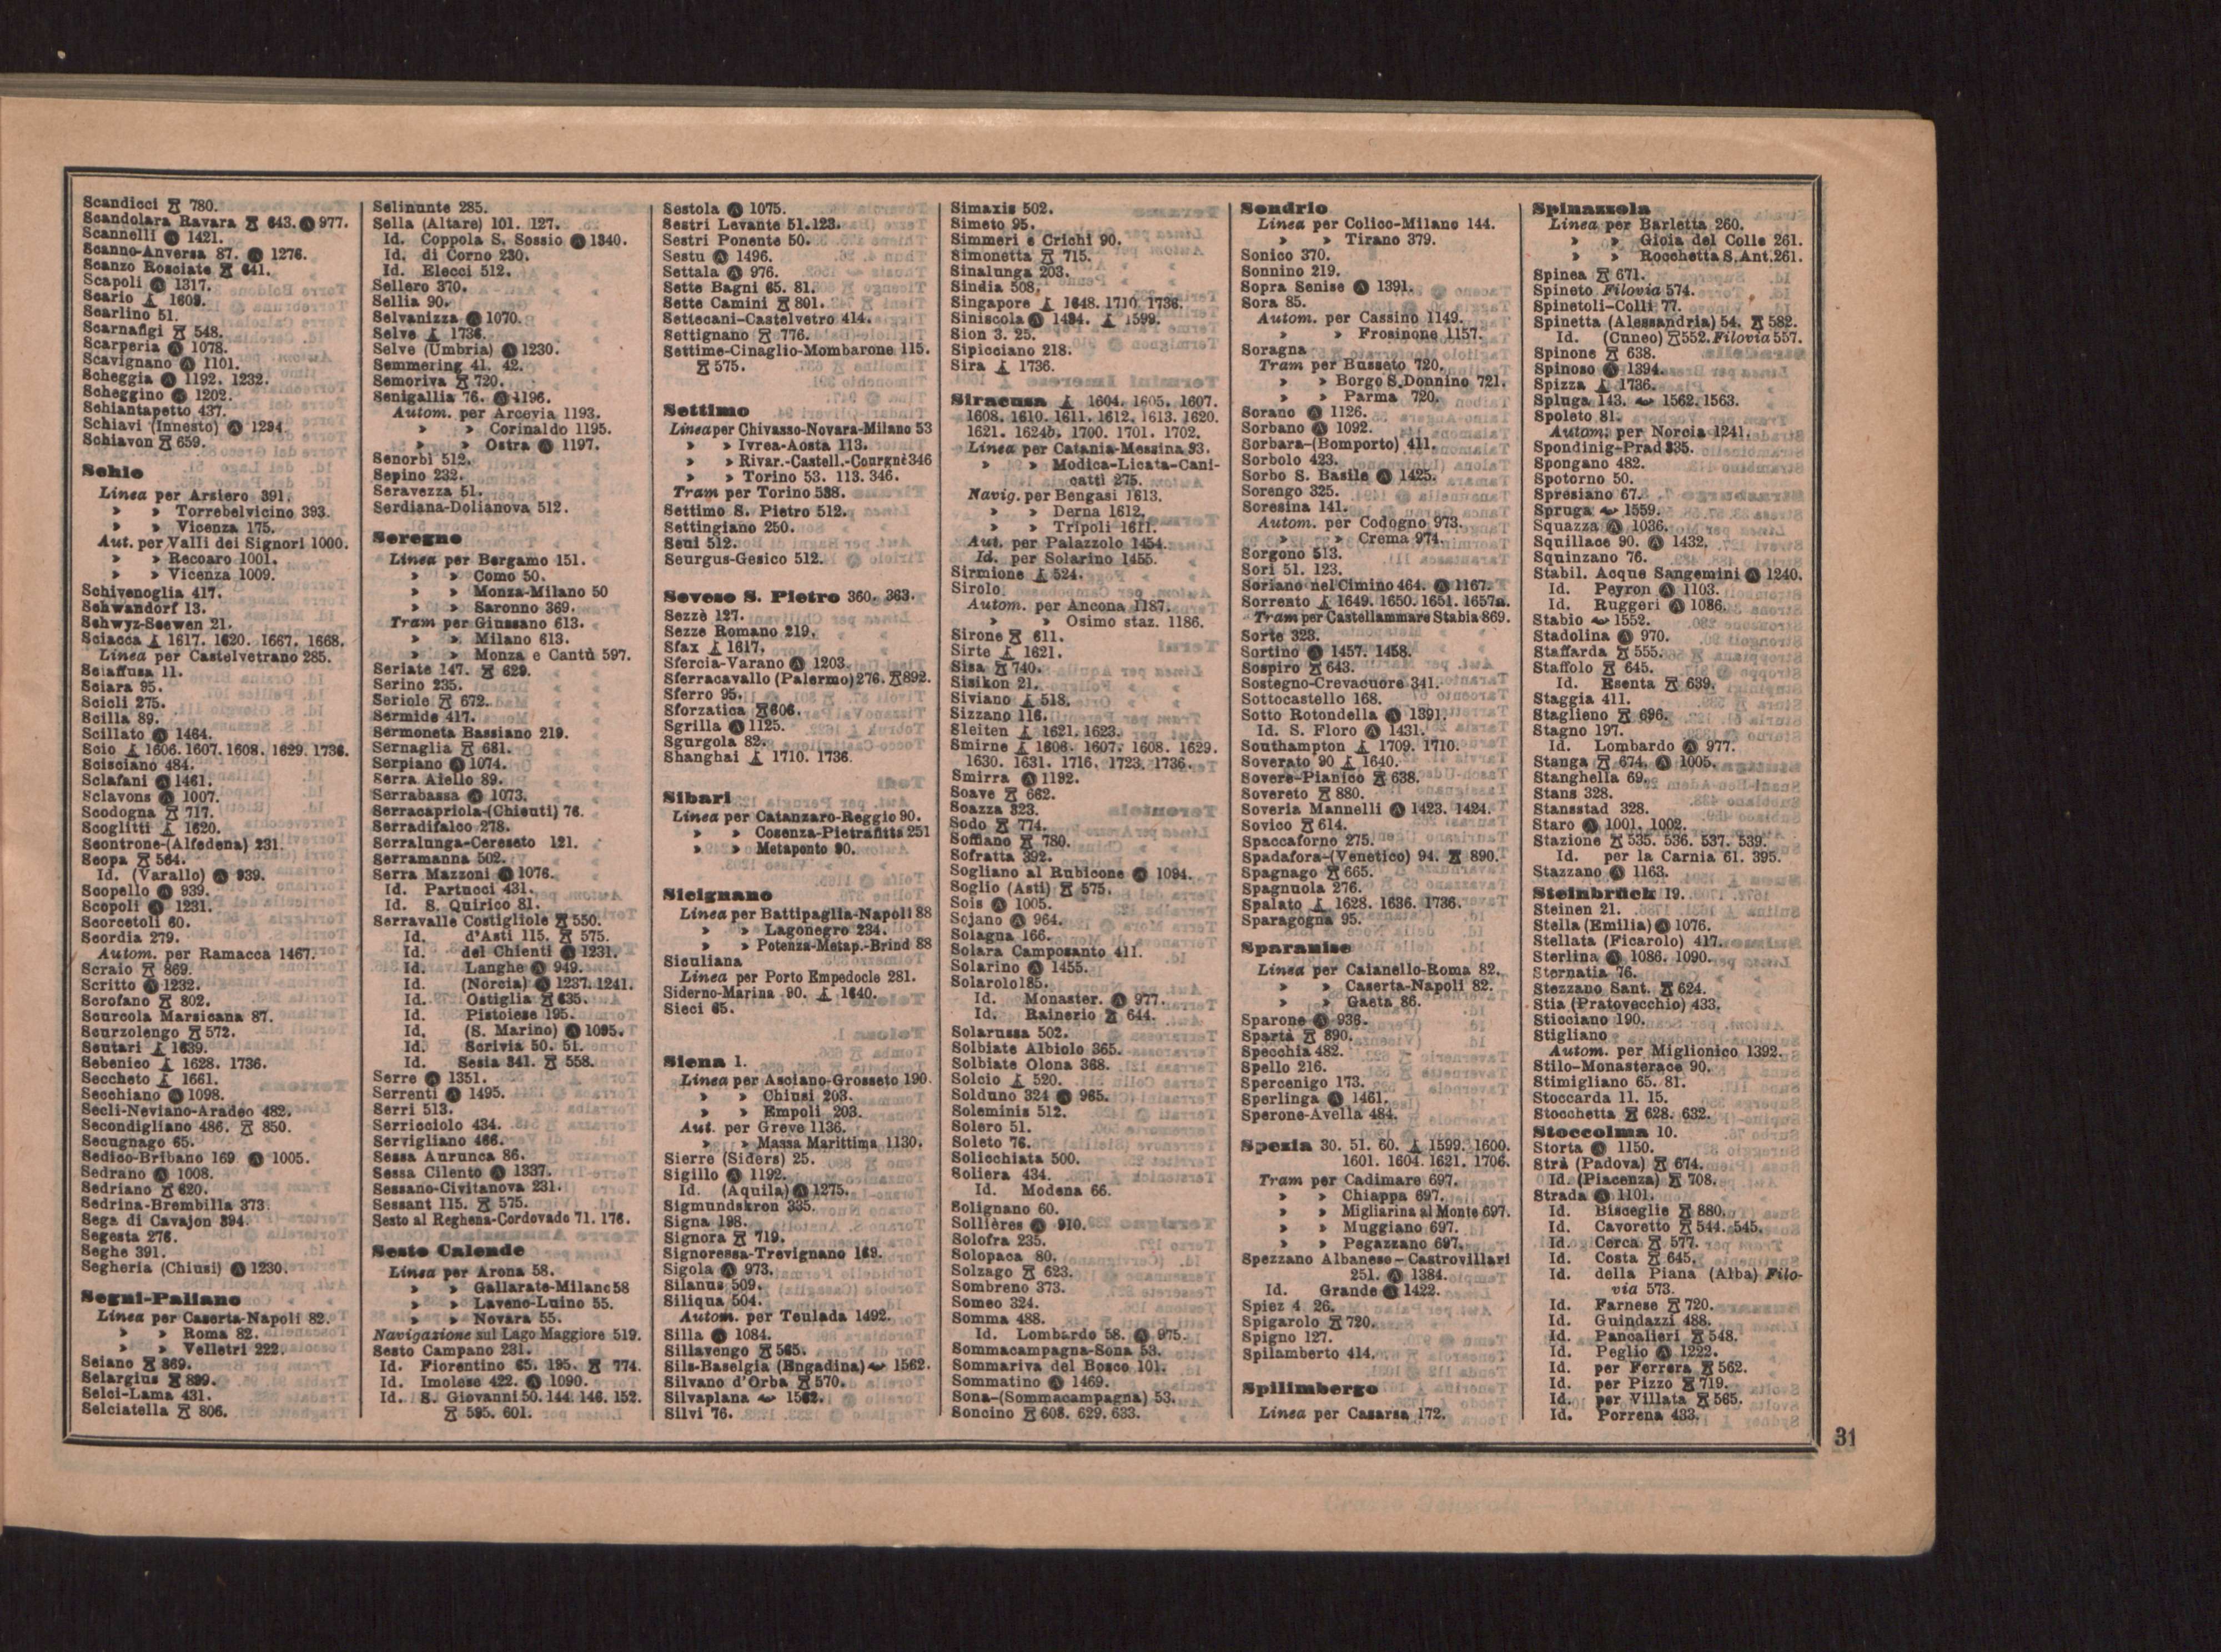 Scandicci 780.
Scandolara Ravara 643. 977.
Scannelli 1421.
Scanno-Anversa 87. 1276.
Scanzo Rosciate 641.
Scapoli 1317.
Scario 1609.
Scarlino 51.
Scarnafigi 548.
Scarperia 1078.
Scavignano 1101.
Scheggia 1192. 1232.
Scheggino 1202.
Schiantapetto 437.
Schiavi (Innesto) 1294.
Schiavon 659.
Schio
Linea per Arsiero 391.
» » Torrebelvicino 393.
» » Vicenza 175.
Aut. per Valli dei Signori 1000.
» » Recoaro 1001.
» » Vicenza 1009.
Schivenoglia 417.
Schwandorf 13.
Schwyz-Seewen 21.
Sciacca 1617. 1620. 1667. 1668.
Linea per Castelvetrano 285.
Sciaffusa 11.
Sciara 95.
Scicli 275.
Scilla 89.
Scillato 1464.
Scio 1606. 1607. 1608. 1629. 1736.
Scisciano 484.
Sclafani 1461.
Sclavons 1007.
Scodogna 717.
Scoglitti 1620.
Scontrone-(Alfedena) 231.
Scopa 564.
Id. (Varallo) 939.
Scopello 939.
Scopoli 1231.
Scorcetoli 60.
Scordia 279.
Autom. per Ramacca 1467.
Scraio 869.
Scritto 1232.
Scrofano 802.
Scurcola Marsicana 87.
Scurzolengo 572.
Scutari 1639.
Sebenico 1628. 1736.
Seccheto 1661.
Secchiano 1098.
Seclì-Neviano-Aradeo 482.
Secondigliano 486. 850.
Secugnago 65.
Sedico-Bribano 169 1005.
Sedrano 1008.
Sedriano 620.
Sedrina-Brembilla 373.
Sega di Cavajon 394.
Segesta 276.
Seghe 391.
Segheria (Chiusi) 1230.
Segni-Paliano
Linea per Caserta-Napoli 82.
» » Roma 82.
» » Velletri 222.
Seiano 869.
Selargius 899.
Selci-Lama 431.
Selciatella 806.
Selinunte 285.
Sella (Altare) 101. 127.
Id. Coppola S. Sossio 1340.
Id. di Corno 230.
Id. Elecci 512.
Sellero 370.
Sellia 90.
Selvanizza 1070.
Selve 1736.
Selve (Umbria) 1230.
Semmering 41. 42.
Semoriva 720.
Senigallia 76. 1196.
Autom. per Arcevia 1193.
» » Corinaldo 1195.
» » Ostra 1197.
Senorbì 512.
Sepino 232.
Seravezza 51.
Serdiana-Dolianova 512.
Seregno
Linea per Bergamo 151.
» » Como 50.
» » Monza-Milano 50
» » Saronno 369.
Tram per Giussano 613.
» » Milano 613.
» » Monza e Cantù 597.
Seriate 147. 629.
Serino 235.
Seriole 672.
Sermide 417.
Sermoneta Bassiano 219.
Sernaglia 681.
Serpiano 1074.
Serra Aiello 89.
Serrabassa 1073.
Serracapriola-(Chieuti) 76.
Serradifalco 278.
Serralunga-Cereseto 121.
Serramanna 502.
Serra Mazzoni 1076.
Id. Partucci 431.
Id. S. Quirico 81.
Serravalle Costigliole 550.
Id. d'Asti 115. 575.
Id. del Chienti 1231.
Id. Langhe 949.
Id. (Norcia) 1237. 1241.
Id. Ostiglia 635.
Id. Pistoiese 195.
Id. (S. Marino) 1095.
Id. Scrivia 50. 51.
Id. Sesia 341. 558.
Serre 1351.
Serrenti 1495.
Serri 513.
Serricciolo 434.
Servigliano 466.
Sessa Aurunca 86.
Sessa Cilento 1337.
Sessano-Civitanova 231.
Sessant 115. 575.
Sesto al Reghena-Cordovado 71. 176.
Sesto Calende
Linea per Arona 58.
» » Gallarate-Milano 58
» » Laveno-Luino 55.
» » Novara 55.
Navigazione sul Lago Maggiore 519.
Sesto Campano 231.
Id. Fiorentino 65. 195. 774.
Id. Imolese 422. 1090.
Id. S. Giovanni 50. 144. 146. 152.
595. 601.
Sestola 1075.
Sestri Levante 51. 123.
Sestri Ponente 50.
Sestu 1496.
Settala 976.
Sette Bagni 65. 81.
Sette Camini 801.
Settecani-Castelvetro 414.
Settignano 776.
Settime-Cinaglio-Mombarone 115.
575.
Settimo
Linea per Chivasso-Novara-Milano 53
» » Ivrea-Aosta 113.
» » Rivar.-Castell.-Courgnè 346
» » Torino 53. 113. 346.
Tram per Torino 538.
Settimo S. Pietro 512.
Settingiano 250.
Seui 512.
Seurgus-Gesico 512.
Seveso S. Pietro 360. 363.
Sezzè 127.
Sezze Romano 219.
Sfax 1617.
Sfercia-Varano 1203
Sferracavallo (Palermo) 276. 892.
Sferro 95.
Sforzatica 606.
Sgrilla 1125.
Sgurgola 82.
Shanghai 1710. 1736.
Sibari
Linea per Catanzaro-Reggio 90.
» » Cosenza-Pietrafitta 251
» » Metaponto 90.
Sicignano
Linea per Battipaglia-Napoli 88
» » Lagonegro 234.
» » Potenza-Metap.-Brind 88
Siculiana
Linea per Porto Empedocle 281.
Siderno-Marina 90. 1640.
Sieci 65.
Siena 1.
Linea per Asciano-Grosseto 190.
» » Chiusi 203.
» » Empoli 203.
Aut. per Greve 1136.
» » Massa Marittima 1130.
Sierre (Siders) 25.
Sigillo 1192.
Id. (Aquila) 1275.
Sigmundskron 335.
Signa 198.
Signora 719.
Signoressa-Trevignano 169.
Sigola 973.
Silanus 509.
Siliqua 504.
Autom. per Teulada 1492.
Silla 1084.
Sillavengo 565.
Sils-Baselgia (Engadina) 1562.
Silvano d'Orba 570.
Silvaplana 1562.
Silvi 76.
Simaxis 502.
Simeto 95.
Simmeri e Crichi 90.
Simonetta 715.
Sinalunga 203.
Sindia 508.
Singapore 1648. 1710. 1736.
Siniscola 1494. 1599.
Sion 3. 25.
Sipicciano 218.
Sira 1736.
Siracusa 1604. 1605. 1607.
1608. 1610. 1611. 1612. 1613. 1620.
1621. 1624b. 1700. 1701. 1702.
Linea per Catania-Messina 93.
» » Modica-Licata-Cani-
catti 275.
Navig. per Bengasi 1613.
» » Derna 1612.
» » Tripoli 1611.
Aut. per Palazzolo 1454.
Id. per Solarino 1455.
Sirmione 524.
Sirolo
Autom. per Ancona 1187.
» » Osimo staz. 1186.
Sirone 611.
Sirte 1621.
Sisa 740.
Sisikon 21.
Siviano 518.
Sizzano 116.
Sleiten 1621. 1623.
Smirne 1606. 1607. 1608. 1629.
1630. 1631. 1716. 1723. 1736.
Smirra 1192.
Soave 662.
Soazza 323.
Sodo 774.
Soffiano 780.
Sofratta 392.
Sogliano al Rubicone 1094.
Soglio (Asti) 575.
Sois 1005.
Sojano 964.
Solagna 166.
Solara Camposanto 411.
Solarino 1455.
Solarolo 185.
Id. Monaster. 977.
Id. Rainerio 644.
Solarussa 502.
Solbiate Albiolo 365.
Solbiate Olona 368.
Solcio 520.
Solduno 324 965.
Soleminis 512.
Solero 51.
Soleto 76.
Solicchiata 500.
Soliera 434.
Id. Modena 66.
Solignano 60.
Sollières 910.
Solofra 235.
Solopaca 80.
Solzago 623.
Sombreno 373.
Someo 324.
Somma 488.
Id. Lombardo 58. 975.
Sommacampagna-Sona 53.
Sommariva del Bosco 101.
Sommatino 1469.
Sona-(Sommacampagna) 53.
Soncino 608. 629. 633.
Sondrio
Linea per Colico-Milano 144.
» » Tirano 379.
Sonico 370.
Sonnino 219.
Sopra Senise 1391.
Sora 85.
Autom. per Cassino 1149.
» » Frosinone 1157.
Soragna
Tram per Busseto 720.
» » Borgo S. Donnino 721.
» » Parma 720.
Sorano 1126.
Sorbano 1092.
Sorbara-(Bomporto) 411.
Sorbolo 423.
Sorbo S. Basile 1425.
Sorengo 325.
Soresina 141.
Autom. per Codogno 973.
» » Crema 974.
Sorgono 513.
Sori 51. 123.
Soriano nel Cimino 464. 1167.
Sorrento 1649. 1650. 1651. 1657a.
Tram per Castellammare Stabia 869.
Sorte 323.
Sortino 1457. 1458.
Sospiro 643.
Sostegno-Crevacuore 341.
Sottocastello 168.
Sotto Rotondella 1391.
Id. S. Floro 1431.
Southampton 1709. 1710.
Soverato 90 1640.
Sovere-Pianico 638.
Sovereto 880.
Soveria Mannelli 1423. 1424.
Sovico 614.
Spaccaforno 275.
Spadafora-(Venetico) 94. 890.
Spagnago 665.
Spagnuola 276.
Spalato 1628. 1636. 1736.
Sparagogna 95.
Sparanise
Linea per Caianello-Roma 82.
» » Caserta-Napoli 82.
» » Gaeta 86.
Sparone 936.
Spartà 890.
Specchia 482.
Spello 216.
Spercenigo 173.
Sperlinga 1461.
Sperone-Avella 484.
Spezia 30. 51. 60. 1599. 1600.
1601. 1604. 1621. 1706.
Tram per Cadimare 697.
» » Chiappa 697.
» » Migliarina al Monte 697.
» » Muggiano 697.
» » Pegazzano 697.
Spezzano Albanese-Castrovillari
251. 1384.
Id. Grande 1422.
Spiez 4 26.
Spigarolo 720.
Spigno 127.
Spilamberto 414.
Spilimbergo
Linea per Casarsa 172.
Spinazzola
Linea per Barletta 260.
» » Gioia del Colle 261.
» » Rocchetta S. Ant. 261.
Spinea 671.
Spineto Filovia 574.
Spinetoli-Colli 77.
Spinetta (Alessandria) 54. 582.
Id. (Cuneo) 552. Filovia 557.
Spinone 638.
Spinoso 1394.
Spizza 1736.
Spluga 143. 1562. 1563.
Spoleto 81.
Autom. per Norcia 1241.
Spondinig-Prad 335.
Spongano 482.
Spotorno 50.
Spresiano 67.
Spruga 1559.
Squazza 1036.
Squillace 90. 1432.
Squinzano 76.
Stabil. Acque Sangemini 1240.
Id. Peyron 1103.
Id. Ruggeri 1086.
Stabio 1552.
Stadolina 970.
Staffarda 555.
Staffolo 645.
Id. Esenta 639.
Staggia 411.
Staglieno 696.
Stagno 197.
Id. Lombardo 977.
Stanga 674. 1005.
Stanghella 69.
Stans 328.
Stansstad 328.
Staro 1001. 1002.
Stazione 535. 536. 537. 539.
Id. per la Carnia 61. 395.
Stazzano 1163.
Steinbrück 19.
Steinen 21.
Stella (Emilia) 1076.
Stellata (Ficarolo) 417.
Sterlina 1086. 1090.
Sternatia 76.
Stezzano Sant. 624.
Stia (Pratovecchio) 433.
Sticciano 190.
Stigliano
Autom. per Miglionico 1392.
Stilo-Monasterace 90.
Stimigliano 65. 81.
Stoccarda 11. 15.
Stocchetta 628. 632.
Stoccolma 10.
Storta 1150.
Strà (Padova) 674.
Id. (Piacenza) 708.
Strada 1101.
Id. Bisceglie 880.
Id. Cavoretto 544. 545.
Id. Cerca 577.
Id. Costa 645.
Id. della Piana (Alba) Filo-
via 573.
Id. Farnese 720.
Id. Guindazzi 488.
Id. Pancalieri 548.
Id. Peglio 1222.
Id. per Ferrera 562.
Id. per Pizzo 719.
Id. per Villata 565.
Id. Porrena 433.
31